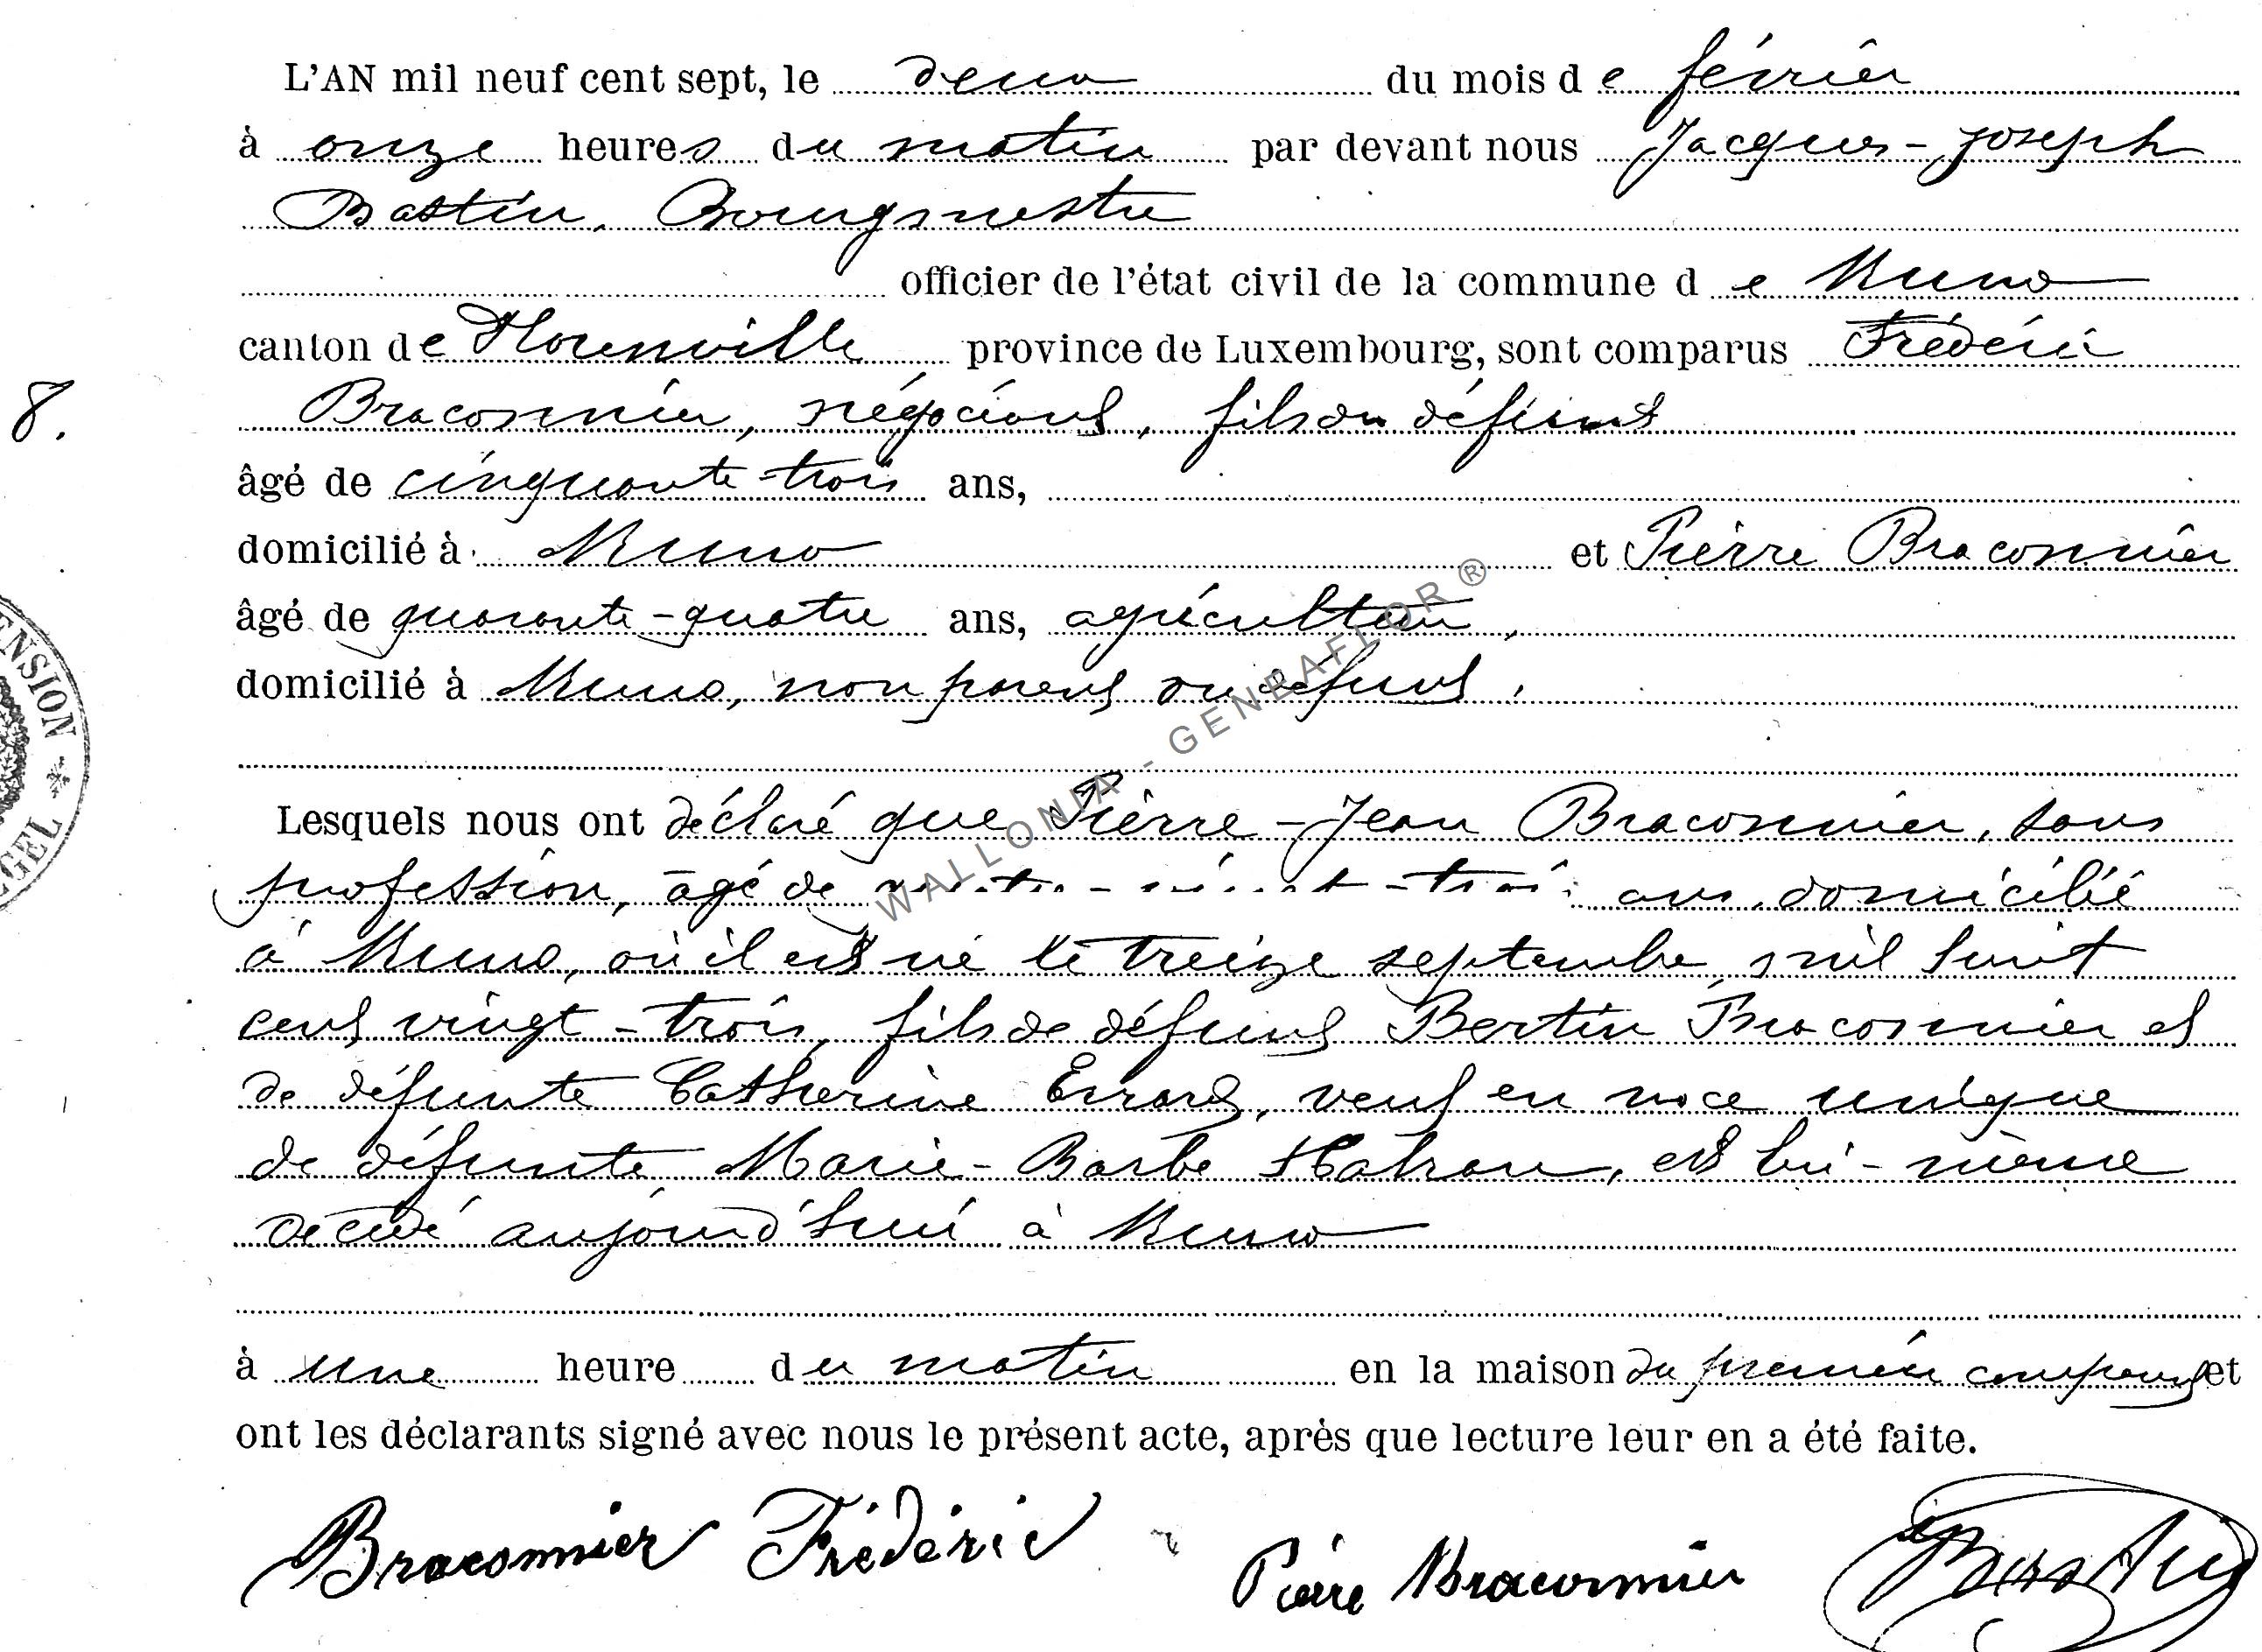 L'AN mil neuf cent sept, le deux du mois de février
à onze heures du matin par devant nous Jacques-Joseph
Bastin, Bourgmestre
officier de l'état civil de la commune de Muno
canton de Florenville province de Luxembourg, sont comparus Frédéric
8.
Braconnier, négociant, fils du défunt
âgé de cinquante-trois ans,
domicilié à Muno et Pierre Braconnier
âgé de quarante-quatre ans, agriculteur,
domicilié à Muno, non parent du défunt.
Lesquels nous ont déclaré que Pierre-Jean Braconnier, sans
profession, âgé de quatre-vingt-trois ans, domicilié
à Muno, où il est né le treize septembre mil huit
cent vingt-trois, fils de défunt Bertin Braconnier et
de défunte Catherine Errard, veuf en noce unique
de défunte Marie-Barbe, est lui-même
décédé aujourd'hui à Muno
à une heure du matin en la maison du premier comparant et
ont les déclarants signé avec nous le présent acte, après que lecture leur en a été faite.
Braconnier Frédéric Pierre Braconnier Bastin
WALLONIA - GENEAFLOR ®
ENSION *